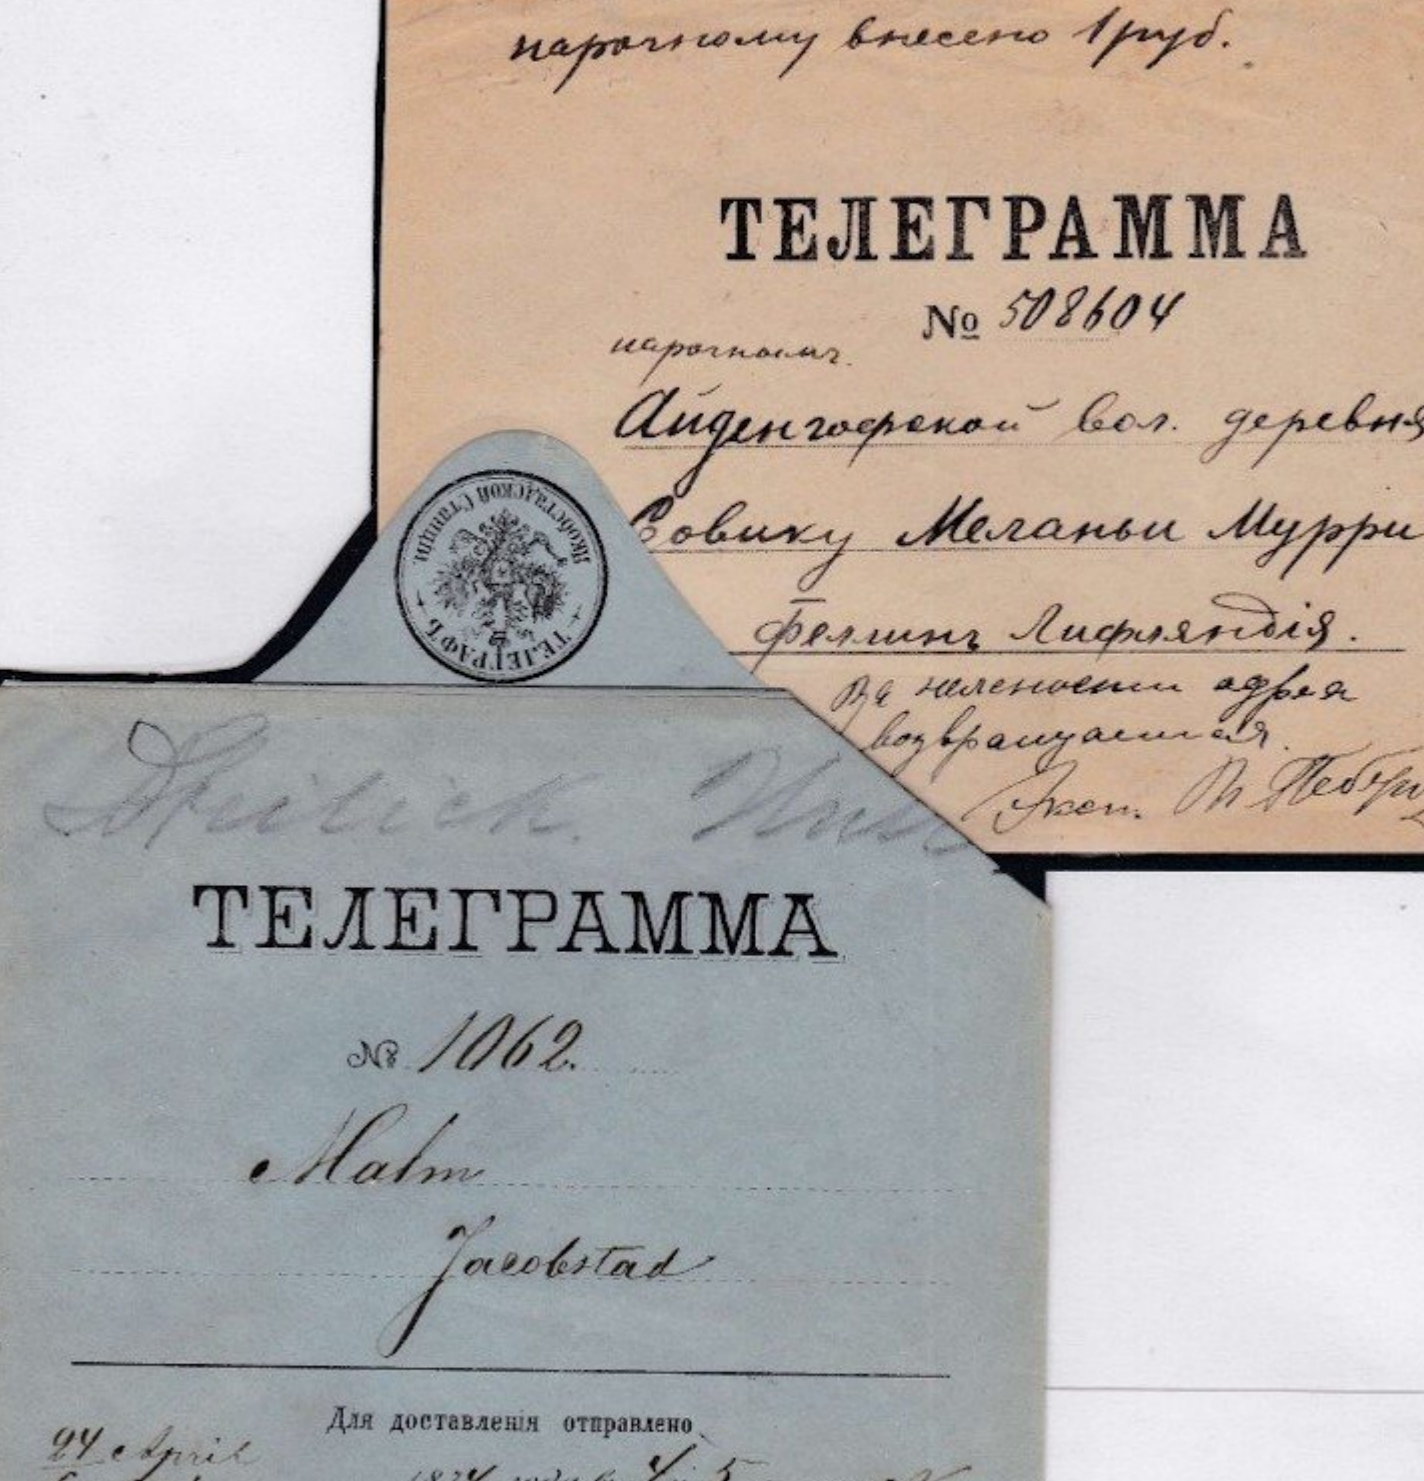 нарочному внесено 1 руб.
ТЕЛЕГРАММА
№ 508604
нарочнымъ.
Айденгофской вол. деревня
Совику Меланьи Мурри
Феллинъ Лифляндія.
За неясностью адреса
возвращается.
Эксп.
Якобстадской Станціи
ТЕЛЕГРАФЪ
ТЕЛЕГРАММА
№ 1062.
Malm
Jacobstad
Для доставленія отправлено
24 April